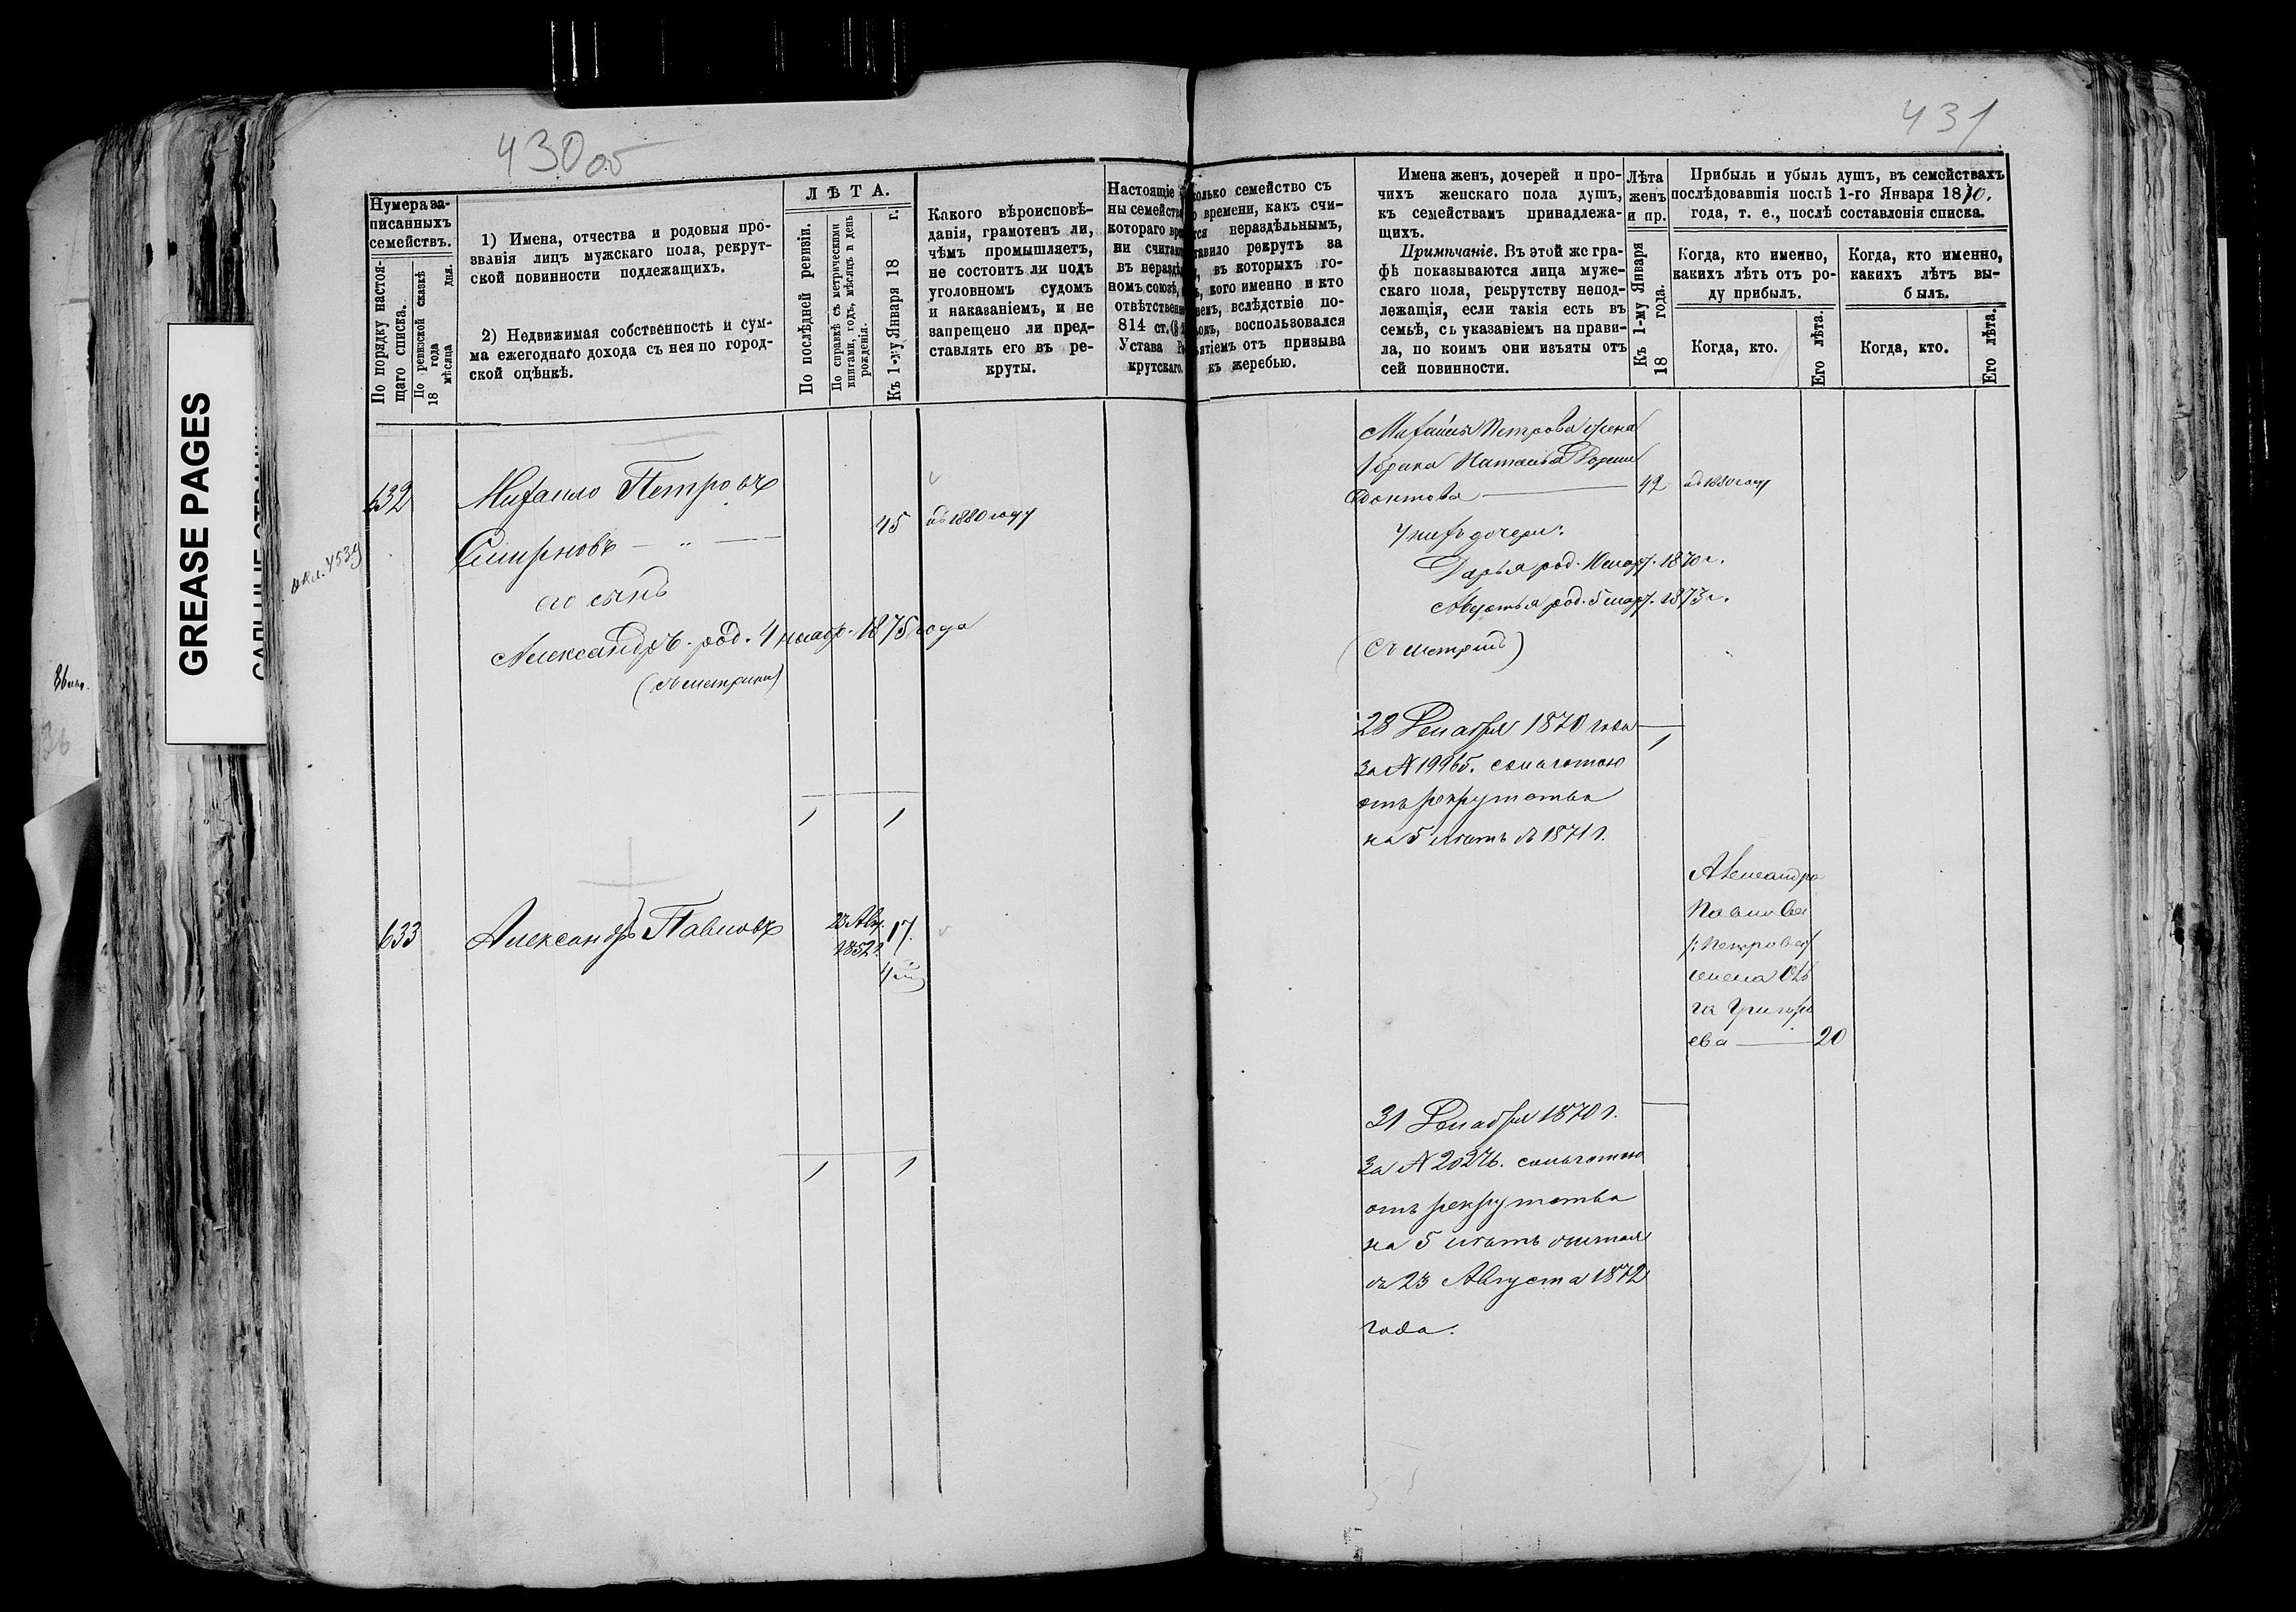 430 об
431
GREASE PAGES
Нумера за-
писанныхъ
семействъ.
По порядку настоя-
щаго списка.
По ревизской сказкѣ
18 года
мѣсяца дня.
1) Имена, отчества и родовыя про-
званія лицъ мужскаго пола, рекрут-
ской повинности подлежащихъ.
2) Недвижимая собственность и сум-
ма ежегоднаго дохода съ нея по город-
ской оцѣнкѣ.
ЛѢТА.
По послѣдней ревизіи.
По справкѣ съ метрическими
книгами, годъ, мѣсяцъ и день
рожденія.
Къ 1-му Января 18 г.
Какого вѣроисповѣ-
данія, грамотенъ ли,
чѣмъ промышляетъ,
не состоитъ ли подъ
уголовномъ судомъ
и наказаніемъ, и не
запрещено ли пред-
ставлять его въ ре-
круты.
Настоящіе
ны семейства
котораго вре
ни считают
въ нераздѣ
номъ союзѣ,
отвѣтственн
814 ст.
Устава Ре
крутскаго.
колько семейство съ
о времени, какъ счи-
тся нераздѣльнымъ,
тавило рекрутъ за
, въ которыхъ го-
ъ, кого именно и кто
ѣмъ, вслѣдствіе по-
окъ, воспользовался
ъятіемъ отъ призыва
къ жеребью.
Имена женъ, дочерей и про-
чихъ женскаго пола душъ,
къ семействамъ принадлежа-
щихъ.
Примѣчаніе. Въ этой же гра-
фѣ показываются лица муже-
скаго пола, рекрутству непод-
лежащія, если такія есть въ
семьѣ, съ указаніемъ на прави-
ла, по коимъ они изъяты отъ
сей повинности.
Лѣта
женъ
и пр.
Къ 1-му Января
18 года.
Прибыль и убыль душъ, въ семействахъ
послѣдовавшія послѣ 1-го Января 1870.
года, т. е., послѣ составленія списка.
Когда, кто именно,
какихъ лѣтъ отъ ро-
ду прибылъ.
Когда, кто.
Его лѣта.
Когда, кто именно,
какихъ лѣтъ вы-
былъ.
Когда, кто.
Его лѣта.
632
Михайло Петровъ
Смирновъ — „ —
45
въ 1880 году
его сынъ
Александръ. род. 4 ноябр. 1875 года
(съ метрики)
1 1
Михайлы Петрова жена
1 брака Наталья
42
въ 1880 году
У нихъ дочери:
Дарья род. 1870 г.
род. 5 март. 1873 г.
28 Декабря 1870 года
1
за № 19965. съ льготою
отъ рекрутства
на 5 лѣтъ съ 1871 г.
633
Александръ Павловъ
23 Авг.
1852 г.
17.
Александра
Павлова
/: Петрова /
жена Оль
га Григорь
ева — 20
1 1
31 Декабря 1870 г.
За № 20276. съ льготою
отъ рекрутства
на 5 лѣтъ считая
съ 23 Августа 1872
года.